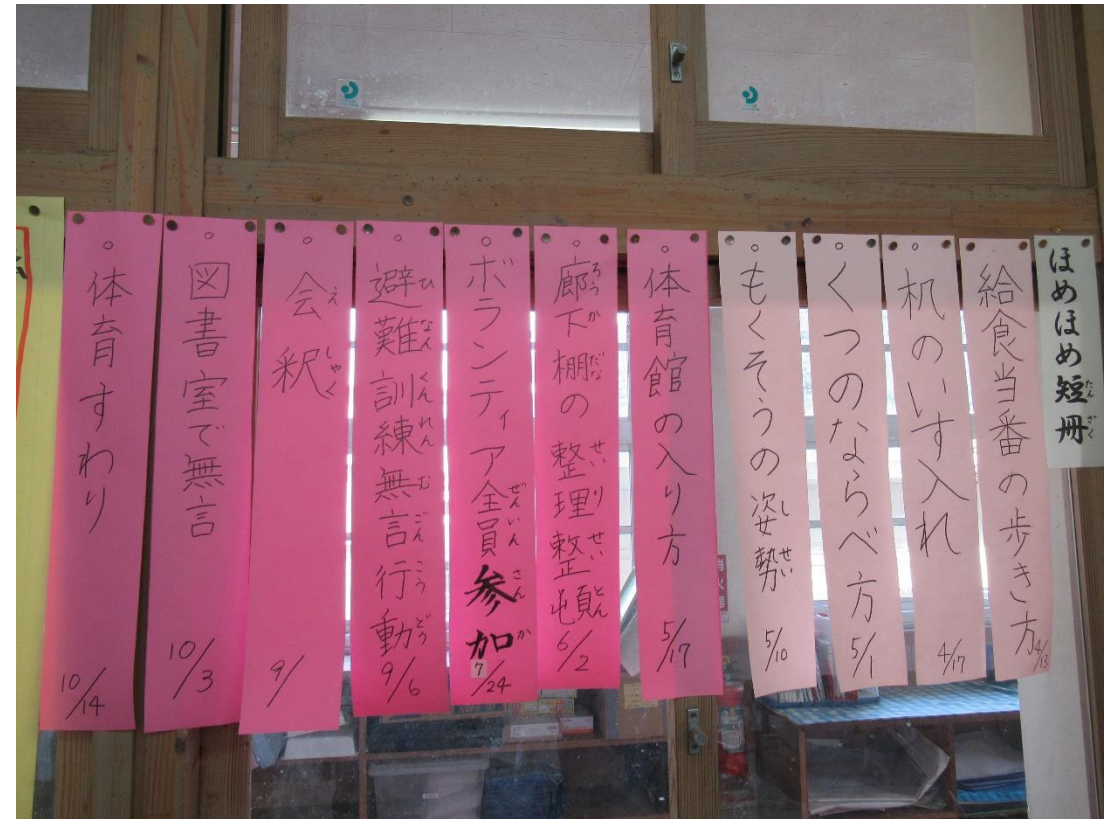 ほめほめ短冊
たんざく
給食当番の歩き方
4/13
机のいす入れ
4/17
くつのならべ方
5/1
もくそうの姿勢
しせい
5/10
体育館の入り方
5/17
廊下棚の整理整頓
ろうかだなせいりせいとん
6/2
ボランティア全員参加
ぜんいんさんか
7/24
避難訓練無言行動
ひなんくんれんむごんこうどう
9/6
会釈
えしゃく
9/
図書室で無言
10/3
体育すわり
10/14